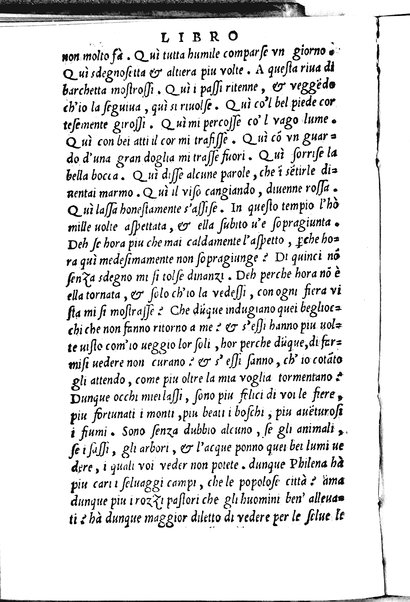 LIBRO
non molto fà. Quì tutta humile comparse vn giorno.
Quì sdegnosetta & altiera piu volte. A questa riua di
barchetta mostrossi. Quì i passi ritenne, & veggẽdo
ch'io la seguiua, quì si riuolse. Quì co'l bel piede cor
tesemente girossi. Quì mi percosse co'l vago lume.
Quì con bei atti il cor mi trafisse. Quì cõ vn guar-
do d'una gran doglia mi trasse fuori. Quì sorrise la
bella bocca. Quì disse alcune parole, che ĩ sẽtirle di-
uentai marmo. Quì il viso cangiando, diuenne rossa.
Quì lassa honestamente s'assise. In questo tempio l'hò
mille uolte aspettata, & ella subito u'e sopragiunta.
Deh se hora piu che mai caldamente l'aspetto, ꝑche ho-
ra quì medesimamente non sopragiunge? Di quinci nõ
senza sdegno mi si tolse dinanzi. Deh perche hora nõ è
ella tornata, & solo ch'io la vedessi, con ogni fiera vi
sta mi si mostrasse? Che dũque indugiano quei begliοc-
chi che non fanno ritorno a me? & s'essi hanno piu uol-
te uisto com'io ueggio lor soli, hor perche dũque, di far-
misi uedere non curano? & s'essi sanno, ch'io cotãto
gli attendo, come piu oltre la mia voglia tormentano?
Dunque occhi miei lassi, sono piu felici di voi le fiere,
piu fortunati i monti, piu beati i boschi, piu auẽturosi
i fiumi. Sono senza dubbio alcuno, se gli animali,
se i sassi, gli arbori, & l'acque ponno quei bei lumi ue
dere, i quali voi veder non potete. dunque Philena hà
piu cari i seluaggi campi, che le popolose città? ama
dunque piu i rozzi pastori che gli huomini ben' alleua-
ti? hà dunque maggior diletto di vedere per le selue le